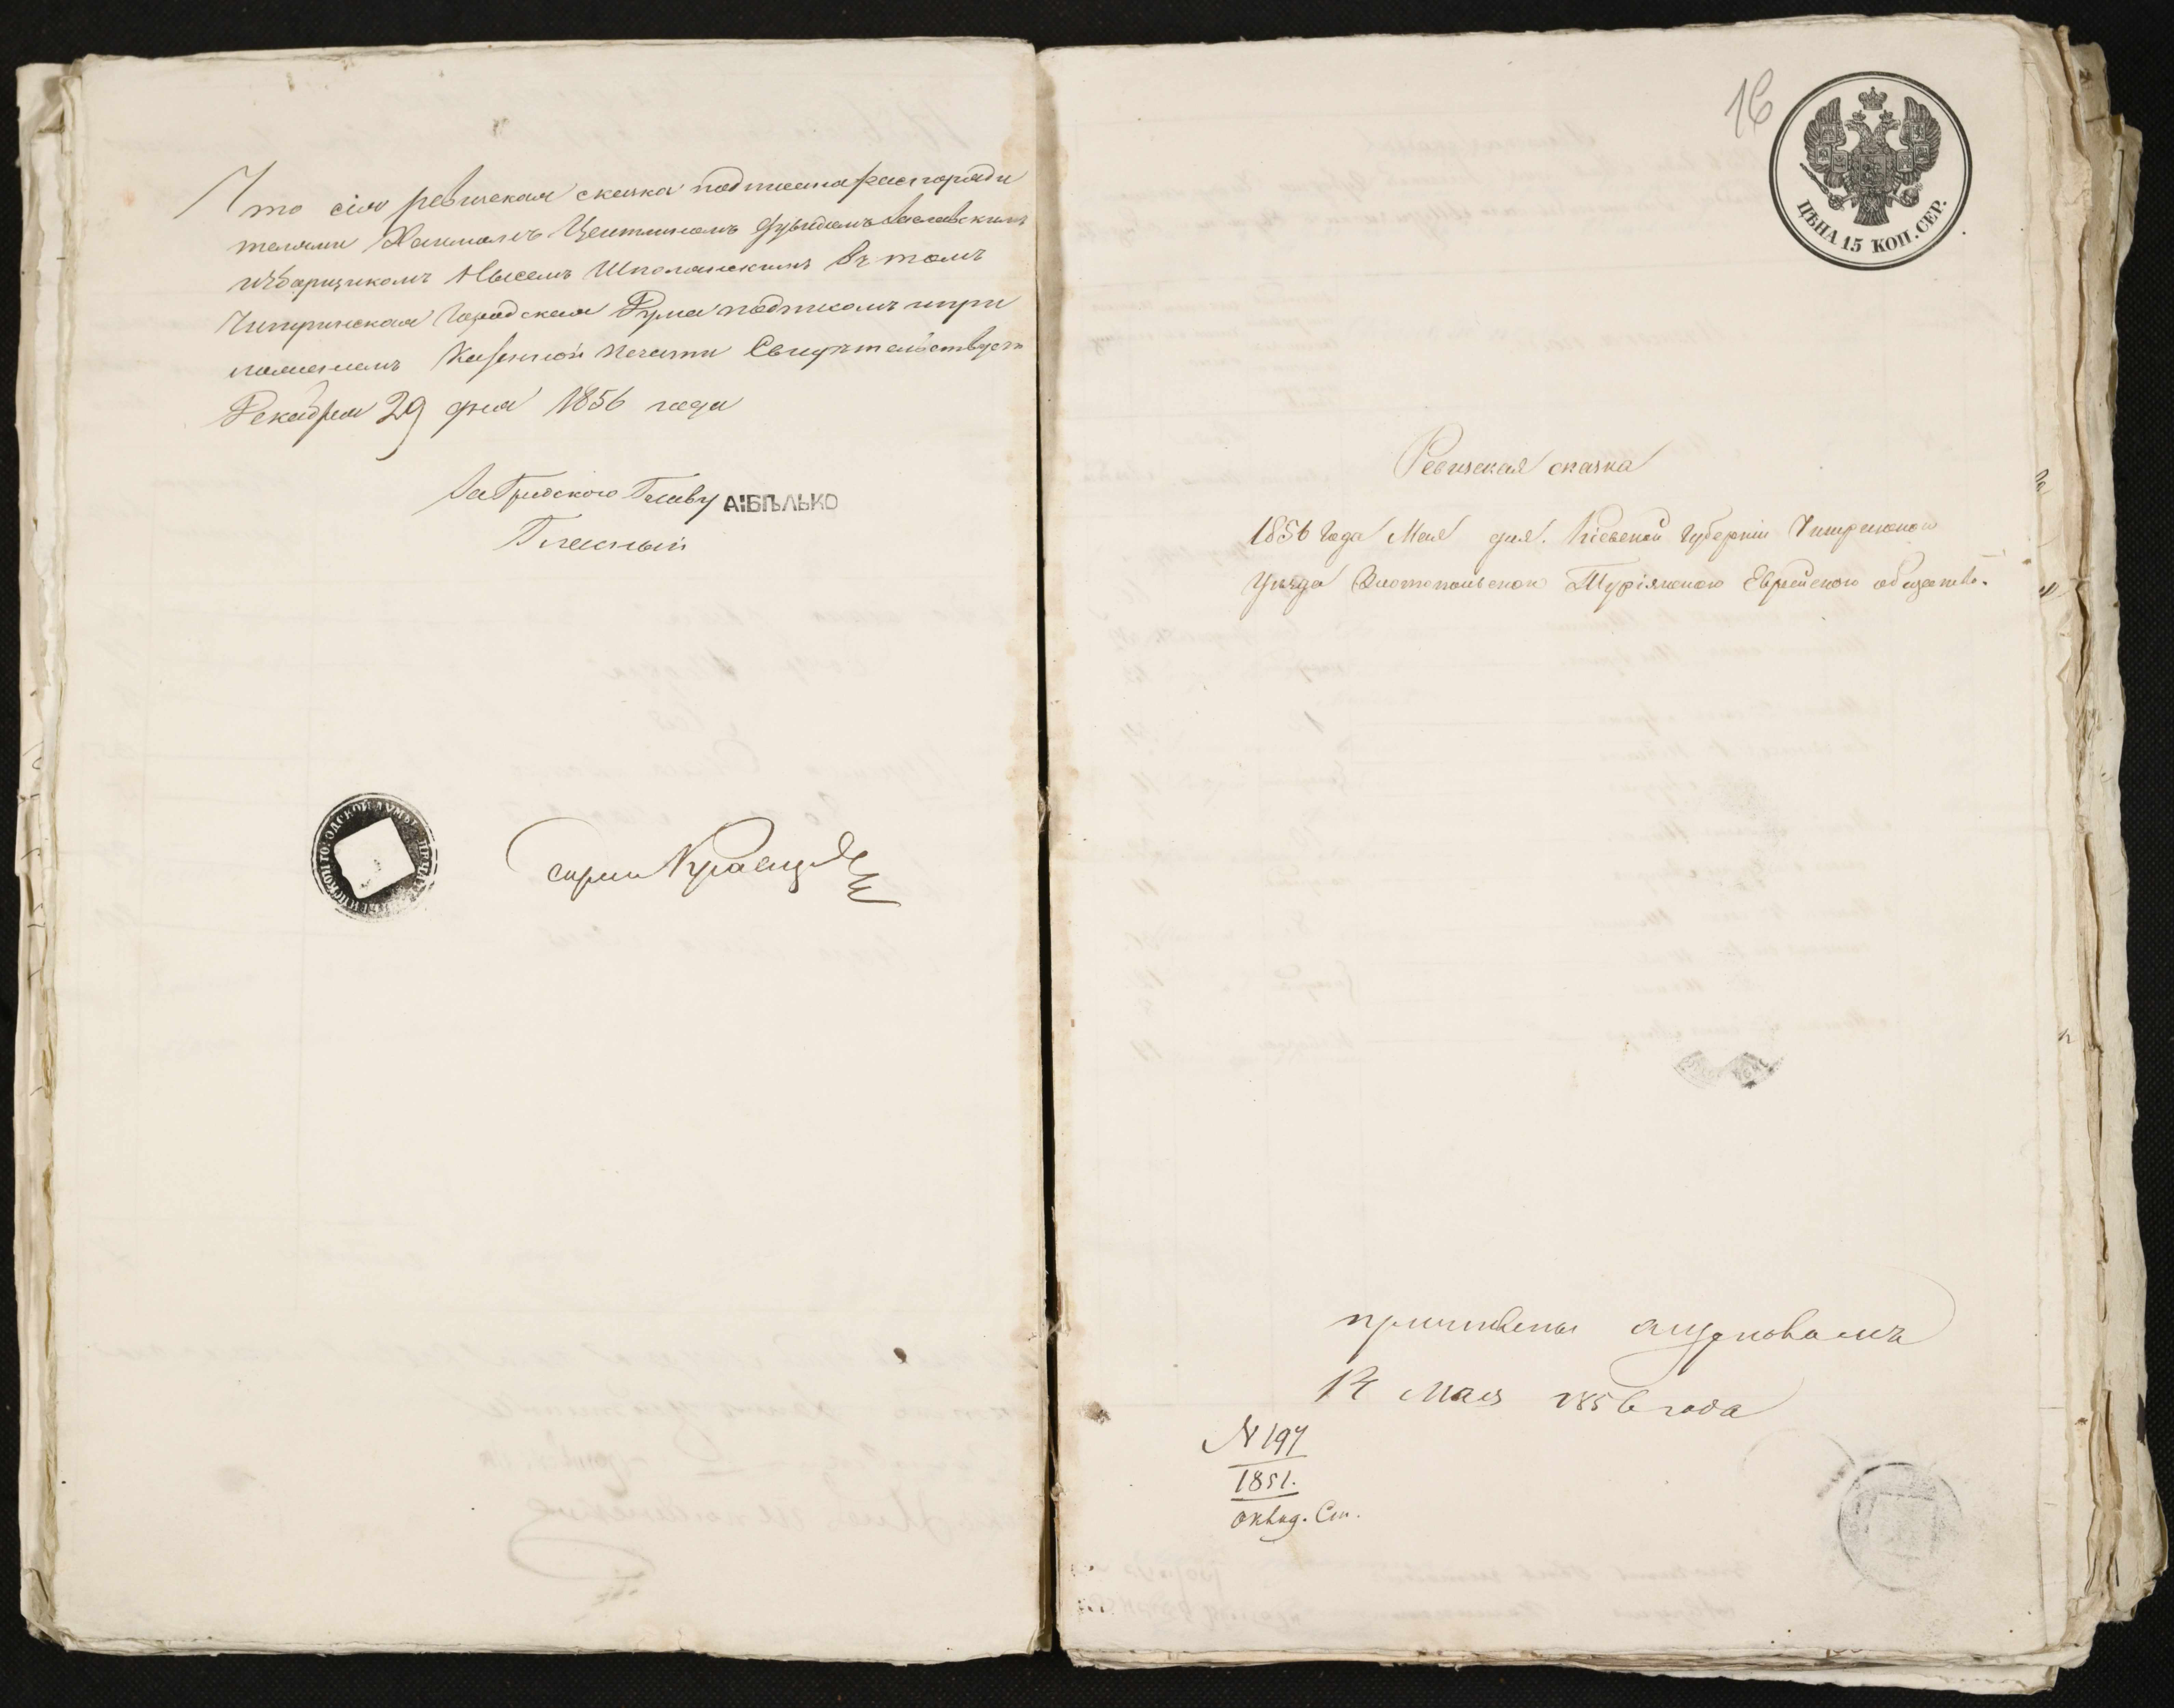 Что сія ревизская сказка подписана распоряди
телями Хаимомъ Цейтлиномъ Дувидомъ Заславскимъ
и Сборщикомъ Нысемъ Шполянскимъ въ томъ
Чигиринская Городская Дума подписомъ и при
ложеніемъ Казенной печати Свидѣтельствуетъ
Декабря 29 дня 1856 года
За Градского Главу А: БѢЛЬКО
Гласный
16
ЦѢНА 15 КОП. СЕР.
Ревизская сказка
1856 года Мая дня. Кіевской Губерніи Чигиринскаго
Уѣзда Златопольскаго Туріянского Еврейского общества.
14 Мая 1856 года
N 197
1851.